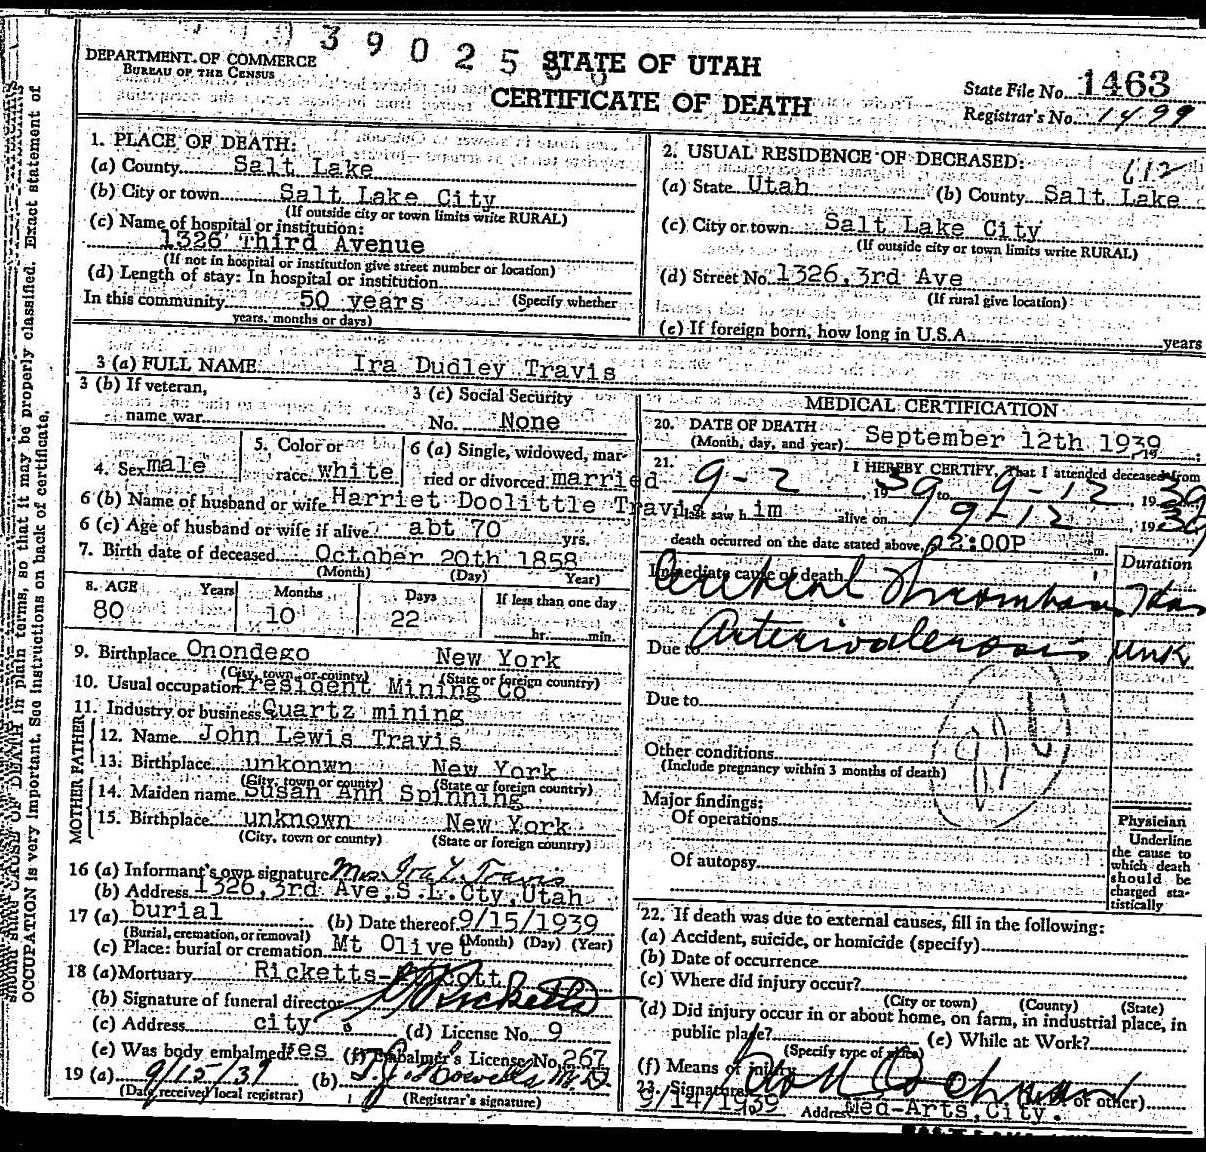 3 9 0 2 5 5 0
DEPARTMENT OF COMMERCE
BUREAU OF THE CENSUS
STATE OF UTAH
CERTIFICATE OF DEATH
State File No. 1463
Registrar's No. 1499
1. PLACE OF DEATH:
(a) County Salt Lake
(b) City or town Salt Lake City
(If outside city or town limits write RURAL)
(c) Name of hospital or institution:
1326 Third Avenue
(If not in hospital or institution give street number or location)
(d) Length of stay: In hospital or institution
In this community 50 years (Specify whether
years, months or days)
2. USUAL RESIDENCE OF DECEASED:
612
(a) State Utah (b) County Salt Lake
(c) City or town Salt Lake City
(If outside city or town limits write RURAL)
(d) Street No. 1326, 3rd Ave
(If rural give location)
(e) If foreign born, how long in U.S.A. years
3 (a) FULL NAME Ira Dudley Travis
3 (b) If veteran,
name war
3 (c) Social Security
No. None
4. Sex male
5. Color or
race white
6 (a) Single, widowed, mar-
ried or divorced married
6 (b) Name of husband or wife Harriet Doolittle Travis
6 (c) Age of husband or wife if alive abt 70 yrs.
7. Birth date of deceased October 20th 1858
(Month) (Day) Year)
8. AGE Years Months Days If less than one day
80 10 22 hr. min.
9. Birthplace Onondego New York
(City, town, or county) (State or foreign country)
10. Usual occupation President Mining Co
11. Industry or business Quartz mining
FATHER
12. Name John Lewis Travis
13. Birthplace unkonwn New York
(City, town or county) (State or foreign country)
MOTHER
14. Maiden name Susan Ann Spinning
15. Birthplace unknown New York
(City, town or county) (State or foreign country)
16 (a) Informant's own signature Mrs Ira Travis
(b) Address 1326, 3rd Ave, S.L.Cty, Utah
17 (a) burial (b) Date thereof 9/15/1939
(Burial, cremation, or removal) (Month) (Day) (Year)
(c) Place: burial or cremation Mt Olivet
18 (a) Mortuary Ricketts-
(b) Signature of funeral director Ricketts
(c) Address city. (d) License No. 9
(e) Was body embalmed? yes (f) Embalmer's License No. 267
19 (a) 9/15/39 (b) T.J. Howells M.D.
(Date received local registrar) (Registrar's signature)
MEDICAL CERTIFICATION
20. DATE OF DEATH
(Month, day, and year) September 12th 1939
21. I HEREBY CERTIFY, That I attended deceased from
9-2, 1939 to 9-12, 1939
I last saw him alive on 9-12, 1939
death occurred on the date stated above, 2:00P m.
Duration
Immediate cause of death
Cerebral Thrombosis
Due to Arteriosclerosis unk
Due to
Other conditions
(Include pregnancy within 3 months of death)
Major findings:
Of operations
Of autopsy
Physician
Underline
the cause to
which death
should be
charged sta-
tistically
22. If death was due to external causes, fill in the following:
(a) Accident, suicide, or homicide (specify)
(b) Date of occurrence
(c) Where did injury occur?
(City or town) (County) (State)
(d) Did injury occur in or about home, on farm, in industrial place, in
public place? (e) While at Work?
(Specify type of place)
(f) Means of injury
23. Signature (M.D. or other)
9/14/1939 Address Med-Arts, City.
CAUSE OF DEATH in plain terms, so that it may be properly classified. Exact statement of
OCCUPATION is very important. See instructions on back of certificate.